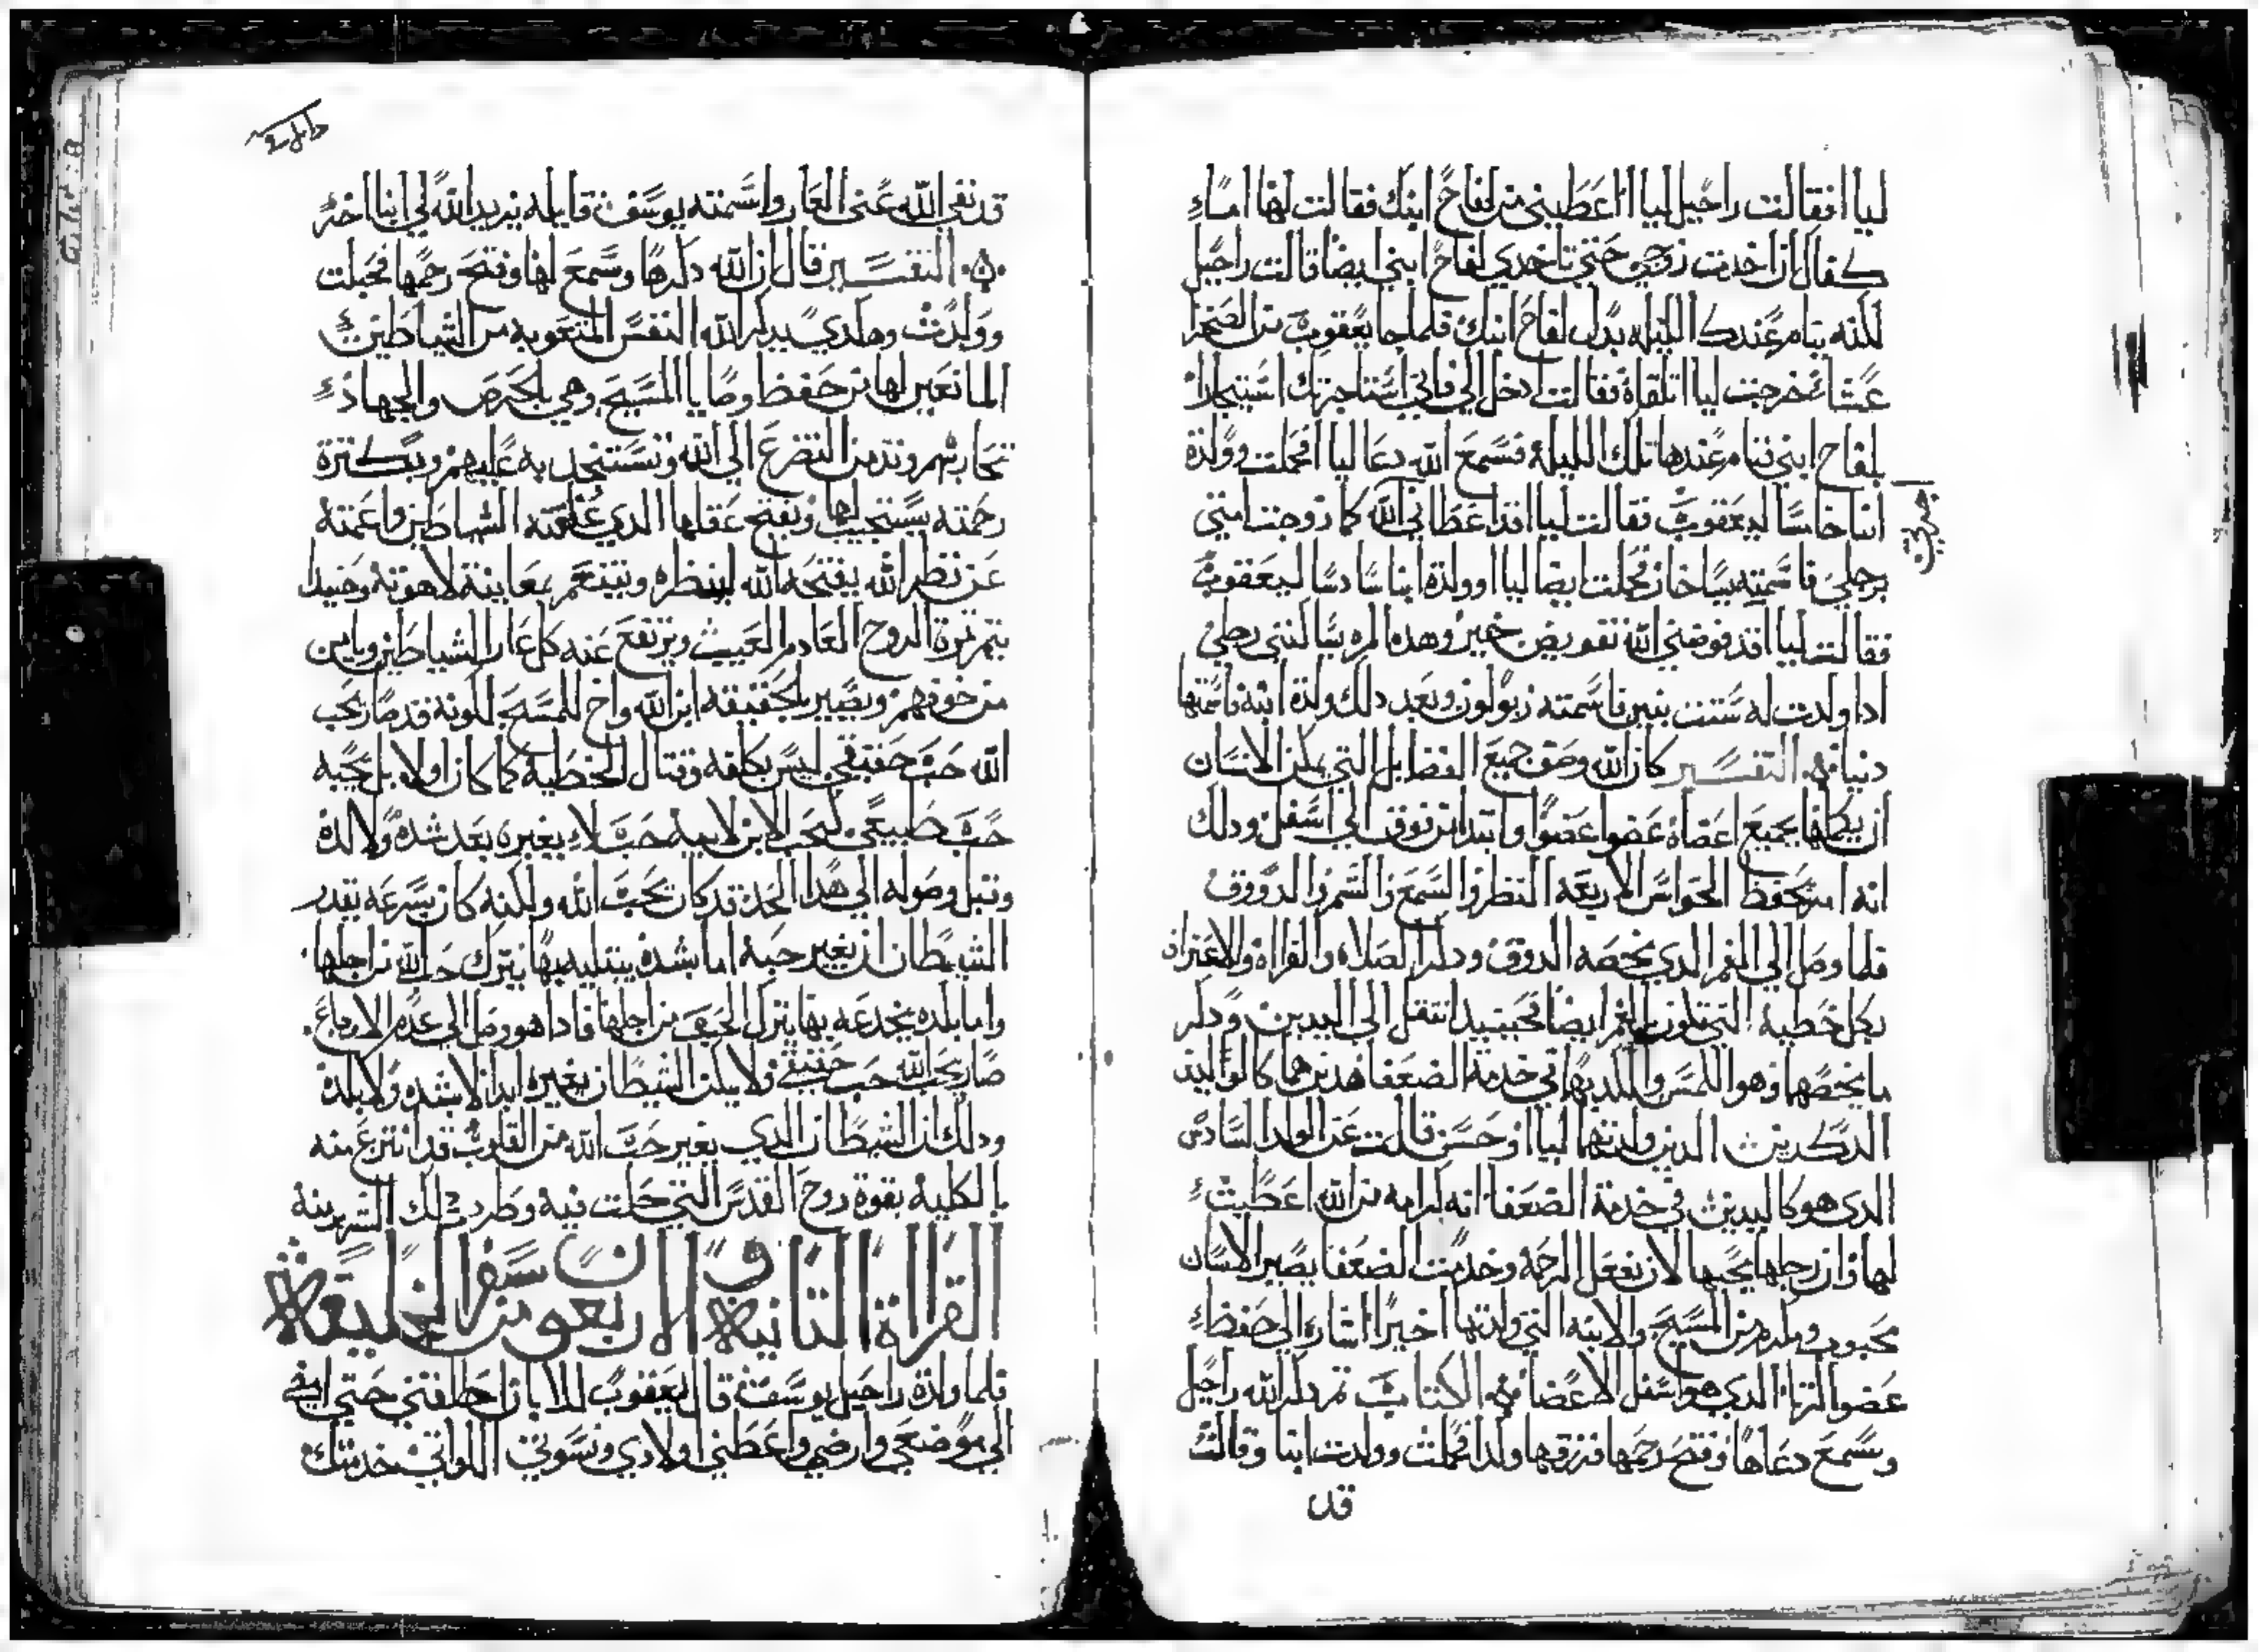 ليا افقالت راحيل ليا اعطيني من لفاح ابنك فقالت لها اماء
كفاك ان اخدت زوجي حتي تاخدي لفاح ابني ايضا قالت راحيل
لكنه ينام عندك الليله بدل لفاح ابنك فلما جا يعقوب من الصحرا
عشا خرجت ليا تلقاه فقالت ادخل الي فاني استاجرتك استيجارا
بلفاح ابني فنام عندها تلك الليله فسمع الله دعا ليا فحملت وولدة
ابنا خامسا ليعقوب فقالت ليا قد اعطاني الله كما زوجت امتي
اجرتي
برجلي فاسمته يساخار فحملت ايضا ليا وولدة ابنا سادسا ليعقوب
فقالت ليا قد فوضني الله تفويض خير وهده المره يسالنني رجلي
ادا ولدت له ستت بنين فاسمته زبولون وبعد دلك ولدة ابنة فاسمتها
دينا التفسير كان الله وصف جميع الفضايل التي يمكن الانسان
ان يكملها بجميع اعضاه عضوا عضوا وابتدا من فوق الي اسفل ودلك
انه امر بحفظ الحواس الاربعه النظر والسمع والشم والدووق
فلما وصل الي الفم الدي يخصه الدوق ودكر الصلاه والقراه والاعتراف
بكل خطية التي تكون بالفم ايضا فحينيد انتقل الي اليدين ودكر
ما يخصها وهو اللمس واللد بها في خدمة الضعفا هدين هما كالوليد
الدكرين الدين ولدتهما ليا وحسن قالت عن الولد السادس
الدي هو كاليدين في خدمة الضعفا انه كرامه من الله اعطيت
لها وان رجلها يحبها لان بفعل الرحمه وخدمت الضعفا يصير الانسان
محبوب ومكرم من المسيح والابنه التي ولدتها اخيرا اشاره الي حفظ
عضو الزنا الدي هو اسفل الاعضا الكتاب تم دكر الله راحيل
وسمع دعاها وفتح رحمها فرزقها ولدا فحملت وولدت ابنا وقالت
قد
قد نفي الله عني العار واسمته يوسف قايله يزيد الله لي ابنا اخر
التفسير قال ان الله دكرها وسمع لها وفتح رحمها فحبلت
وولدت وهكدي يدكر الله النفس المتعوبه من الشياطين
المانعين لها من حفظ وصايا المسيح وهي بالحرص والجهاد
تحاربهم وتدمن التضرع الي الله وتستنجد به عليهم وبكترة
رحمته يستجيب لها ويفتح عقلها الدي غلقته الشياطين واعمته
عن نظر الله يفتحه الله لينظره ويتنعم بمعاينة لاهوته وحينيد
يتمر تمرة الروح العادم العيب ويرتفع عنه كل عار الشياطين ويامن
من خوفهم ويصير بالحقيقه ابن الله واخ للمسيح لكونه قد صار يحب
الله حب حقيقي ليس بكلفه وقتال الخطية كما كان اولا بل يحبه
حب طبيعي كحب الابن لابيه حب لا يغيره بعد شده ولا لدة
وقبل وصوله الي هدا الحد قد كان يحب الله ولكنه كان بسرعه يقدر
الشيطان ان يغير حبه اما بشدة يبتليه بها يترك حب الله من اجلها
واما بلده يخدعه بها يترك الحب من اجلها فادا هو وصل الي عدم الاوجاع
صار يحب الله حب حقيقي ولا يمكن الشيطان يغيره ابدا لا بشده ولا بلدة
ودلك ان الشيطان الدي يغير حب الله من القلوب قد انتزع منه
بالكلية بقوة روح القدس التي حلت فيه وطرد دلك الشر منه
القراة التانية والاربعون من سفر الخليقة
فلما ولدة راحيل يوسف قال يعقوب للابان اطلقني حتي امضي
الي موضعي وارضي واعطني اولادي ونسوتي اللواتي خدمتك